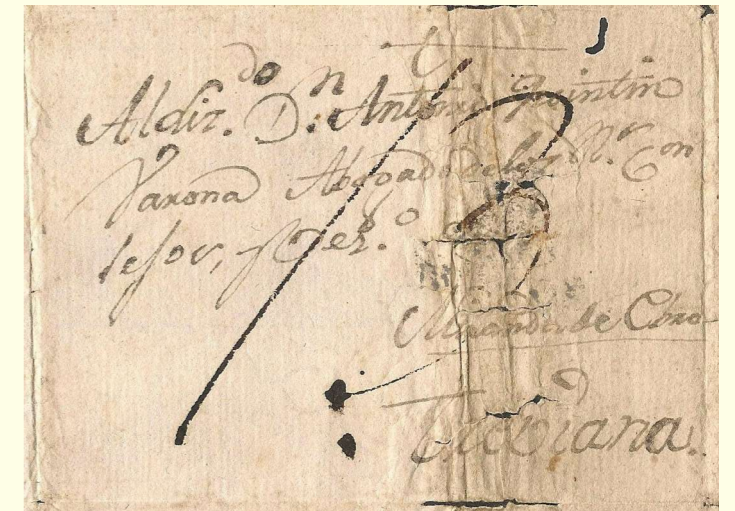 Al Liz.do Dn. Antonio Quintin
Varona Abogado de los Rs. Con
sejos,
Miranda de Ebro